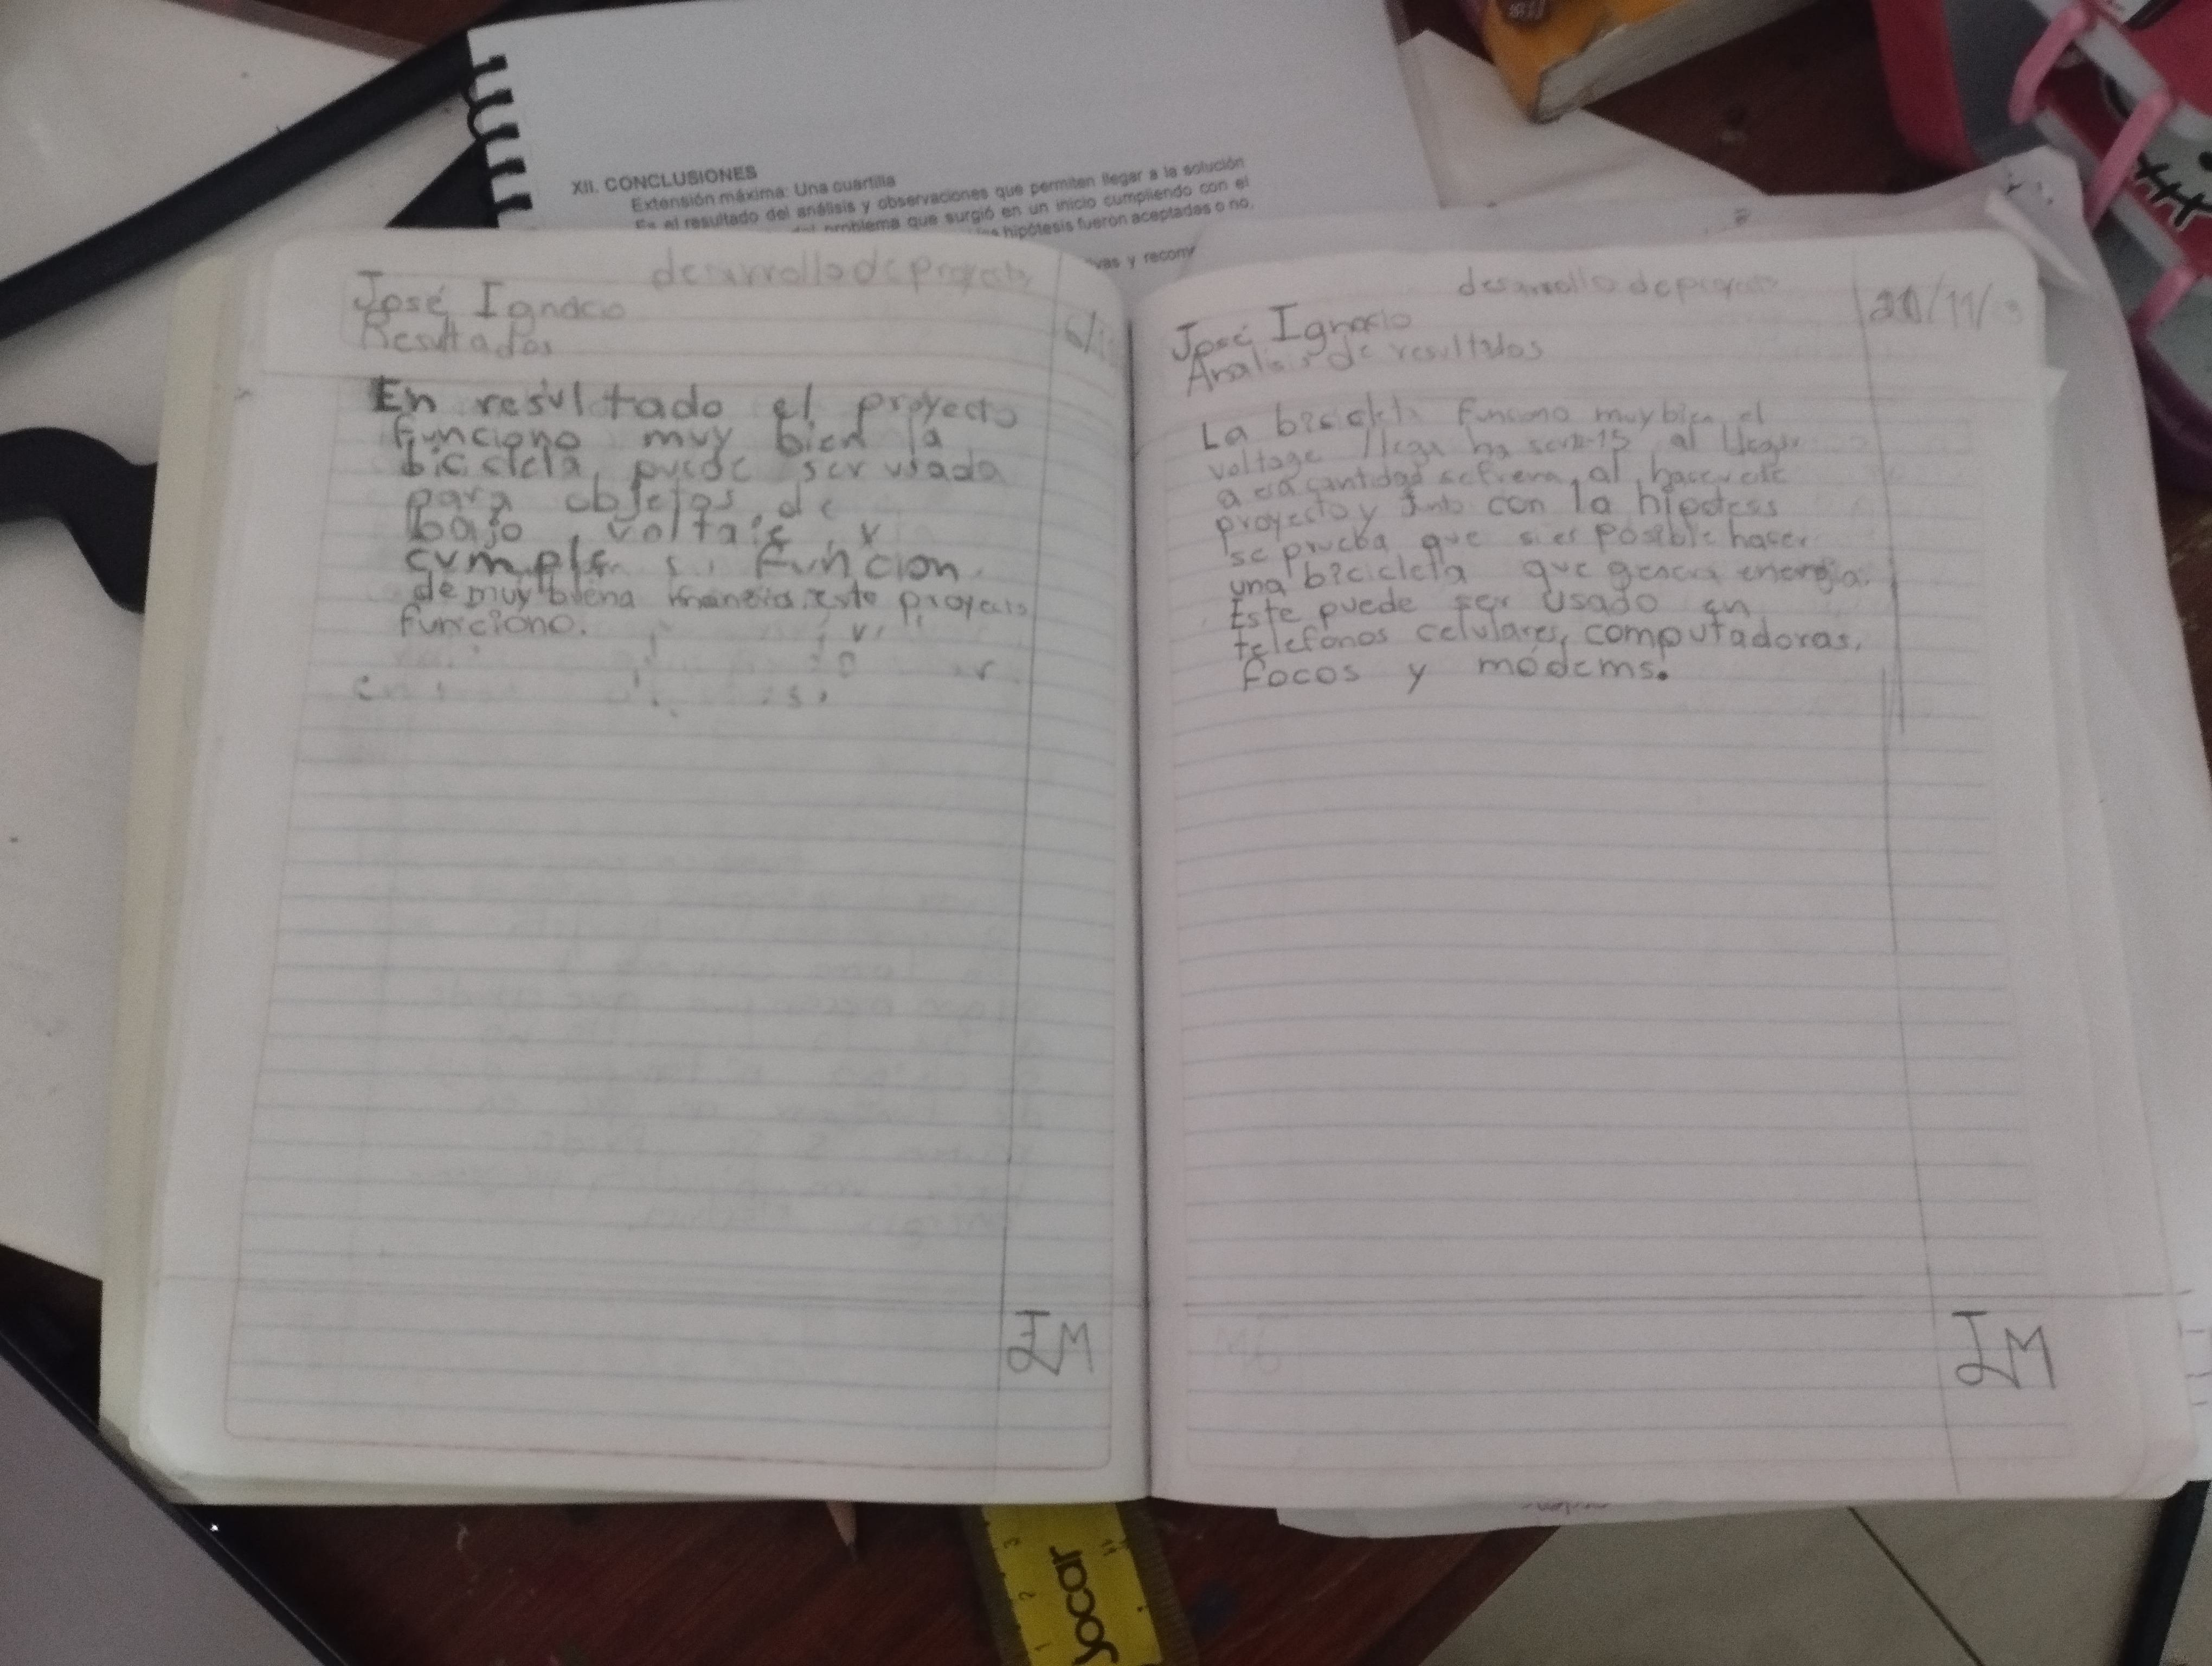 XII. CONCLUSIONES
Extensión máxima: Una cuartilla
Es el resultado del análisis y observaciones que permiten llegar a la solución
del problema que surgió en un inicio cumpliendo con el
hipótesis fueron aceptadas o no.
vas y recon
desarrollo de proyecto
José Ignacio
Resultados
En resultado el proyecto
funciono muy bien la
bicicleta puede ser usada
para objetos de
bajo voltaje y
cumple su funcion
de muy buena manera este proyecto
funciono.
IM
desarrollo de proyecto
20/11/
José Ignacio
Analisis de resultados
La bicicleta funciono muy bien el
voltage llega ha al llegar
a esa cantidad se frena, al hacer este
proyecto y Junto con la hipotess
se prueba que si es posible hacer
una bicicleta que genera energia.
Este puede ser usado en
telefonos celulares, computadoras,
focos y módems.
IM
Jocar